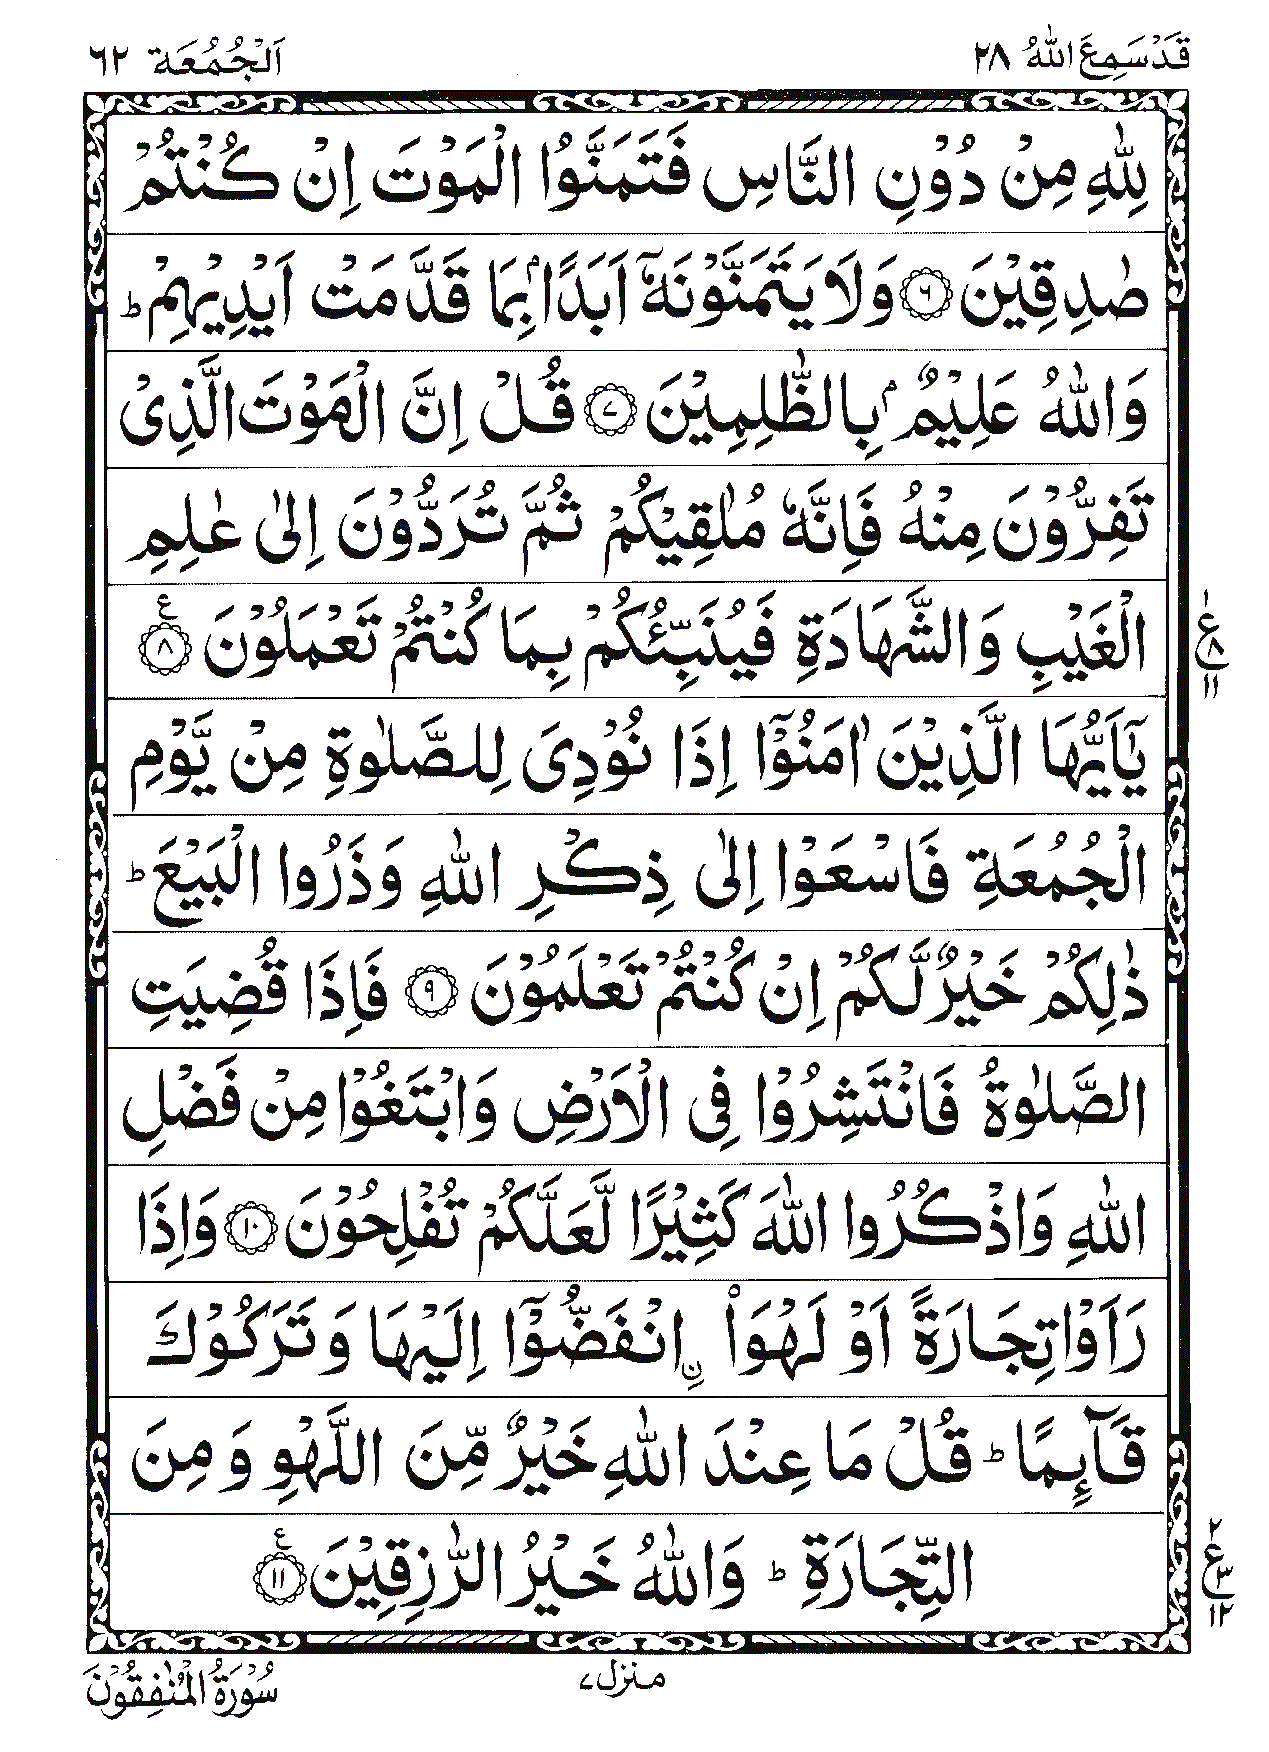 قَدْ سَمِعَ اللّٰهُ ٢٨
اَلْجُمُعَة ٦٢
لِلّٰهِ مِنْ دُوْنِ النَّاسِ فَتَمَنَّوُا الْمَوْتَ اِنْ كُنْتُمْ
صٰدِقِيْنَ ﴿٦﴾ وَلَا يَتَمَنَّوْنَهٗۤ اَبَدًۢا بِمَا قَدَّمَتْ اَيْدِيْهِمْ ؕ
وَاللّٰهُ عَلِيْمٌۢ بِالظّٰلِمِيْنَ ﴿٧﴾ قُلْ اِنَّ الْمَوْتَ الَّذِىْ
تَفِرُّوْنَ مِنْهُ فَاِنَّهٗ مُلٰقِيْكُمْ ثُمَّ تُرَدُّوْنَ اِلٰى عٰلِمِ
الْغَيْبِ وَالشَّهَادَةِ فَيُنَبِّئُكُمْ بِمَا كُنْتُمْ تَعْمَلُوْنَ ﴿٨﴾ ع
١ ع ٨ ١١
يٰۤاَيُّهَا الَّذِيْنَ اٰمَنُوْۤا اِذَا نُوْدِىَ لِلصَّلٰوةِ مِنْ يَّوْمِ
الْجُمُعَةِ فَاسْعَوْا اِلٰى ذِكْرِ اللّٰهِ وَذَرُوا الْبَيْعَ ؕ
ذٰلِكُمْ خَيْرٌ لَّكُمْ اِنْ كُنْتُمْ تَعْلَمُوْنَ ﴿٩﴾ فَاِذَا قُضِيَتِ
الصَّلٰوةُ فَانْتَشِرُوْا فِى الْاَرْضِ وَابْتَغُوْا مِنْ فَضْلِ
اللّٰهِ وَاذْكُرُوا اللّٰهَ كَثِيْرًا لَّعَلَّكُمْ تُفْلِحُوْنَ ﴿١٠﴾ وَاِذَا
رَاَوْا تِجَارَةً اَوْ لَهْوَا۟ ۨانْفَضُّوْۤا اِلَيْهَا وَتَرَكُوْكَ
قَآئِمًا ؕ قُلْ مَا عِنْدَ اللّٰهِ خَيْرٌ مِّنَ اللَّهْوِ وَمِنَ
التِّجَارَةِ ؕ وَاللّٰهُ خَيْرُ الرّٰزِقِيْنَ ﴿١١﴾ ع
٢ ع ٣ ١٢
منزل ٧
سُوْرَةُ الْمُنٰفِقُوْنَ